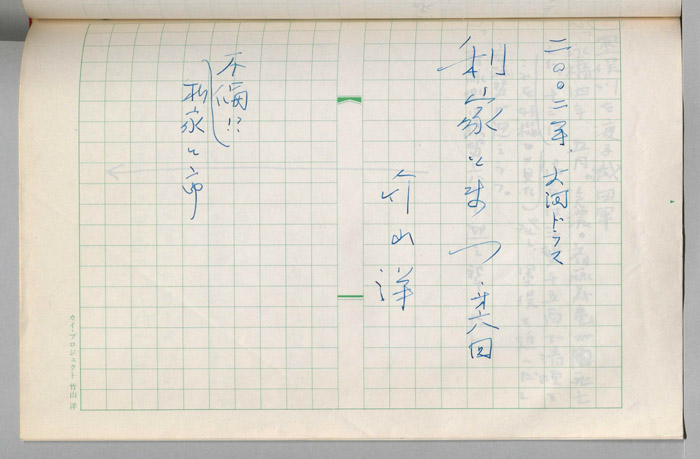 二〇〇二年 大河ドラマ
利家とまつ 第六回
竹山洋
不倫!?
利家と市
カイ・プロジェクト 竹山 洋